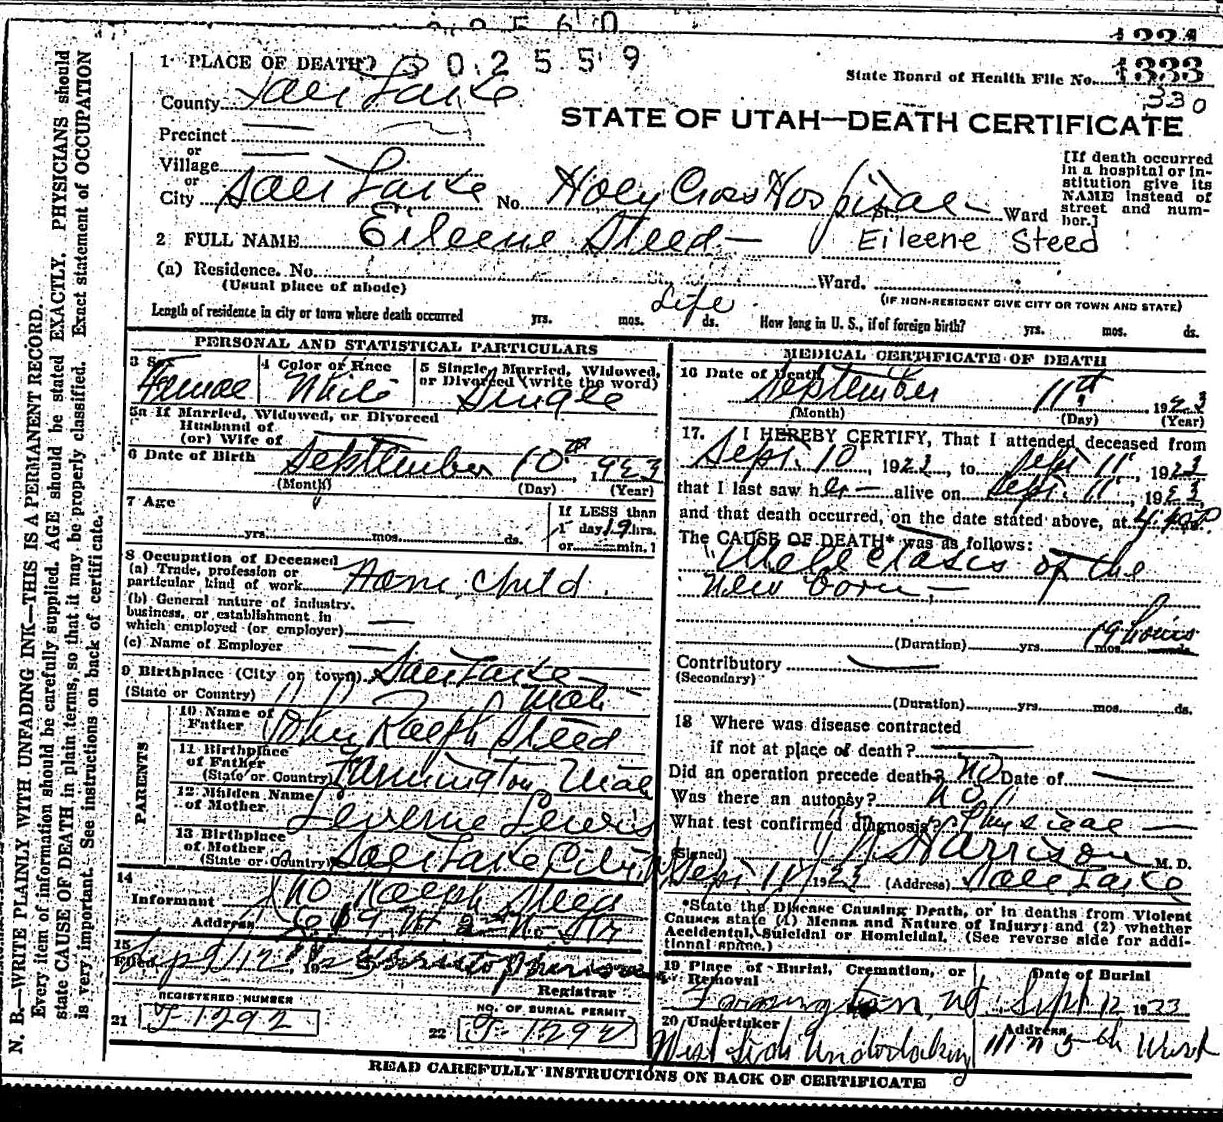 1334
302559
1 PLACE OF DEATH
State Board of Health File No. 1333
330
County Salt Lake
STATE OF UTAH—DEATH CERTIFICATE
Precinct
or
Village
or
City Salt Lake No. Holy Cross Hospital St. Ward
[If death occurred in a hospital or institution give its NAME instead of street and number.]
2 FULL NAME Eileene Steed Eileene Steed
(a) Residence. No. Ward.
(Usual place of abode) (IF NON-RESIDENT GIVE CITY OR TOWN AND STATE)
Length of residence in city or town where death occurred yrs. mos. Life ds. How long in U. S., if of foreign birth? yrs. mos. ds.
PERSONAL AND STATISTICAL PARTICULARS
3 Sex Female
4 Color or Race White
5 Single, Married, Widowed, or Divorced (write the word) Single
5a If Married, Widowed, or Divorced
Husband of
(or) Wife of
6 Date of Birth September 10th 1923
(Month) (Day) (Year)
7 Age yrs. mos. ds. If LESS than 1 day 19 hrs. or min.
8 Occupation of Deceased
(a) Trade, profession or particular kind of work Home, child
(b) General nature of industry, business, or establishment in which employed (or employer)
(c) Name of Employer
9 Birthplace (City or town) Salt Lake
(State or Country) Utah
PARENTS
10 Name of Father John Ralph Steed
11 Birthplace of Father (State or Country) Farmington Utah
12 Maiden Name of Mother Leverne Lewis
13 Birthplace of Mother (State or Country) Salt Lake City, U
14
Informant Jno Ralph Steed
Address
15
Filed Sept 12 1923
Registrar
REGISTERED NUMBER
21 J-1292
NO. OF BURIAL PERMIT
22 J-1292
MEDICAL CERTIFICATE OF DEATH
16 Date of Death September 11th 1923
(Month) (Day) (Year)
17. I HEREBY CERTIFY, That I attended deceased from
Sept. 10, 1923, to Sept 11, 1923
that I last saw her alive on Sept. 11, 1923
and that death occurred, on the date stated above, at
The CAUSE OF DEATH* was as follows:
Atelectasis of the
new born
(Duration) yrs. mos. ds. 19 hours
Contributory
(Secondary)
(Duration) yrs. mos. ds.
18 Where was disease contracted
if not at place of death?
Did an operation precede death? No Date of
Was there an autopsy? No
What test confirmed diagnosis? Physical
(Signed) Harrison M. D.
Sept 11 1923 (Address) Salt Lake
*State the Disease Causing Death, or in deaths from Violent Causes state (1) Means and Nature of Injury; and (2) whether Accidental, Suicidal or Homicidal. (See reverse side for additional space.)
19 Place of Burial, Cremation, or Removal Farmington, Ut
Date of Burial Sept 12 1923
20 Undertaker West Side Undertaking
Address 5th West
READ CAREFULLY INSTRUCTIONS ON BACK OF CERTIFICATE
N. B.—WRITE PLAINLY WITH UNFADING INK—THIS IS A PERMANENT RECORD.
Every item of information should be carefully supplied. AGE should be stated EXACTLY. PHYSICIANS should
state CAUSE OF DEATH in plain terms, so that it may be properly classified. Exact statement of OCCUPATION
is very important. See instructions on back of certificate.